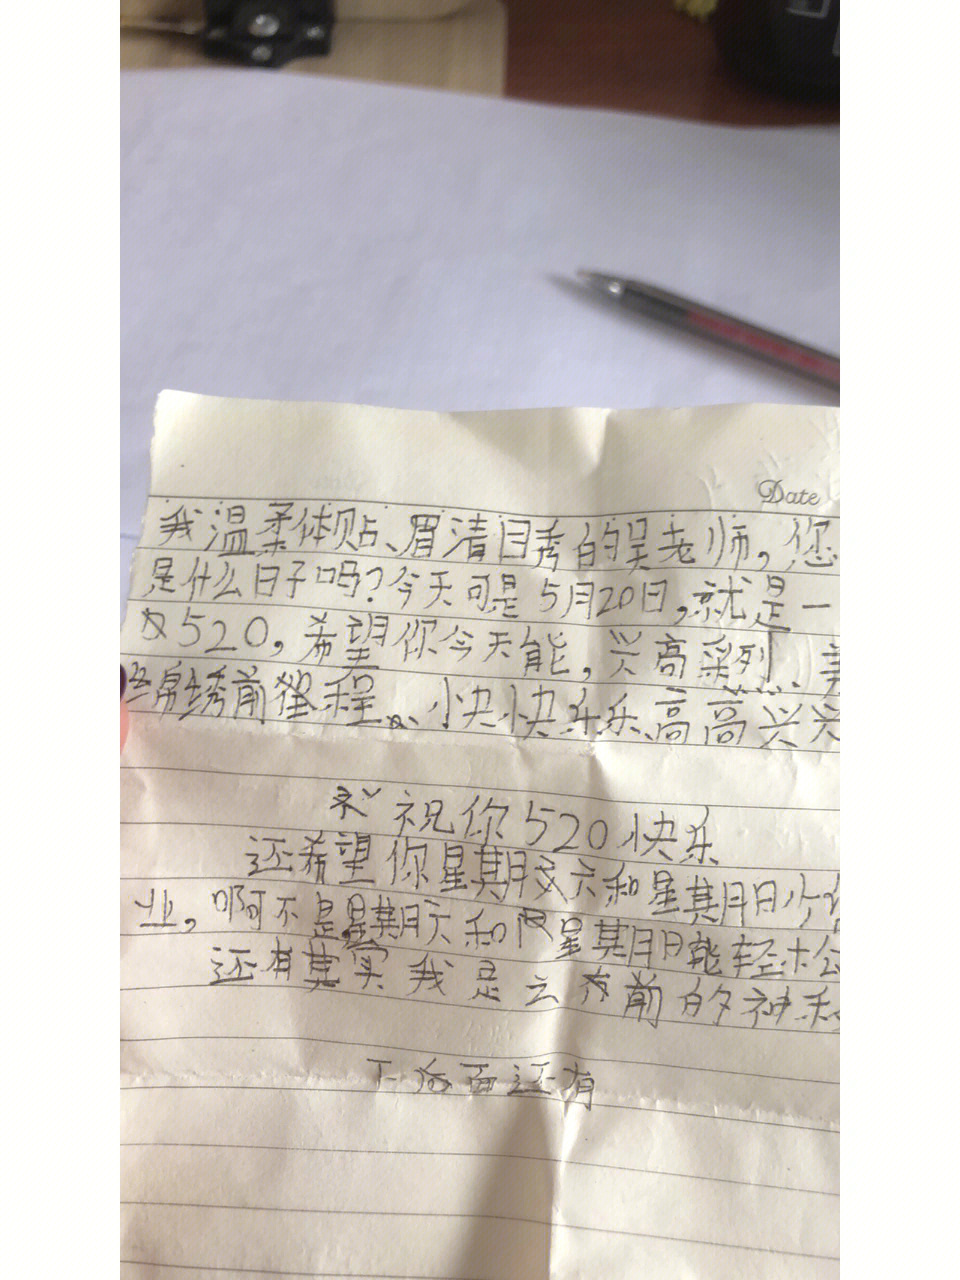 Date
我温柔体贴、眉清目秀的吴老师,您
是什么日子吗?今天可是5月20日,就是一
520,希望你今天能,兴高采烈、美
锦绣前程、快快乐乐、高高兴兴
祝你520快乐
还希望你星期六和星期日少
业,啊不是星期天和星期日能轻松
还有其实我是之前的神秘
后面还有